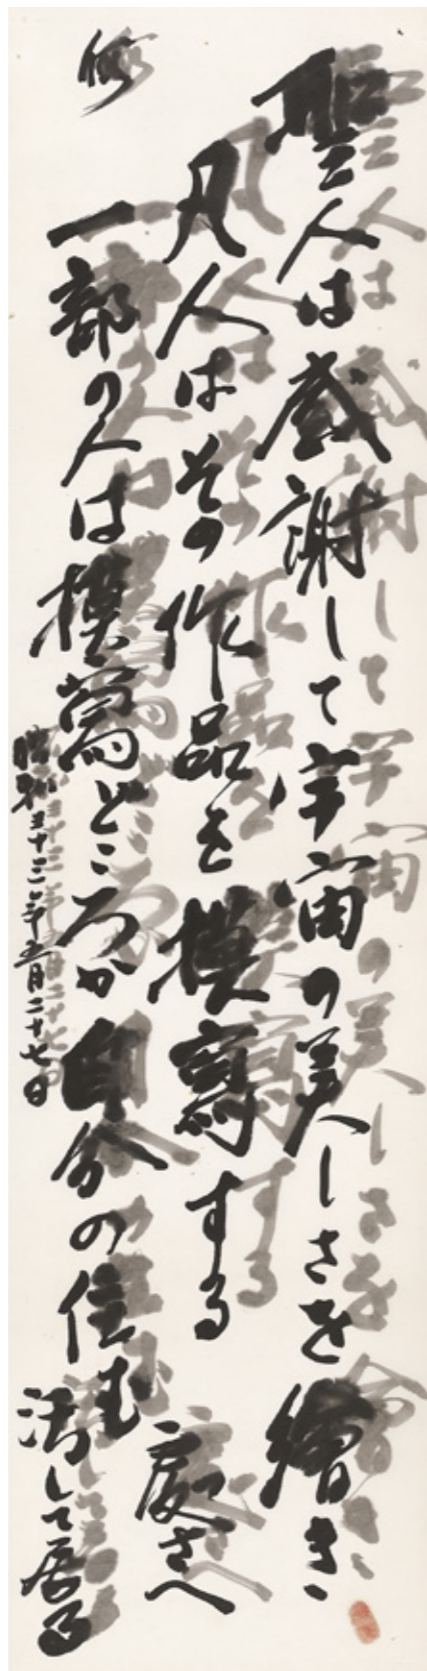 聖人は感謝して宇宙の美しさを繪き
凡人はその作品を模寫する
一部の人は模寫どころか自分の住む
處さへ
汚して居る
昭和三十三年五月二十七日